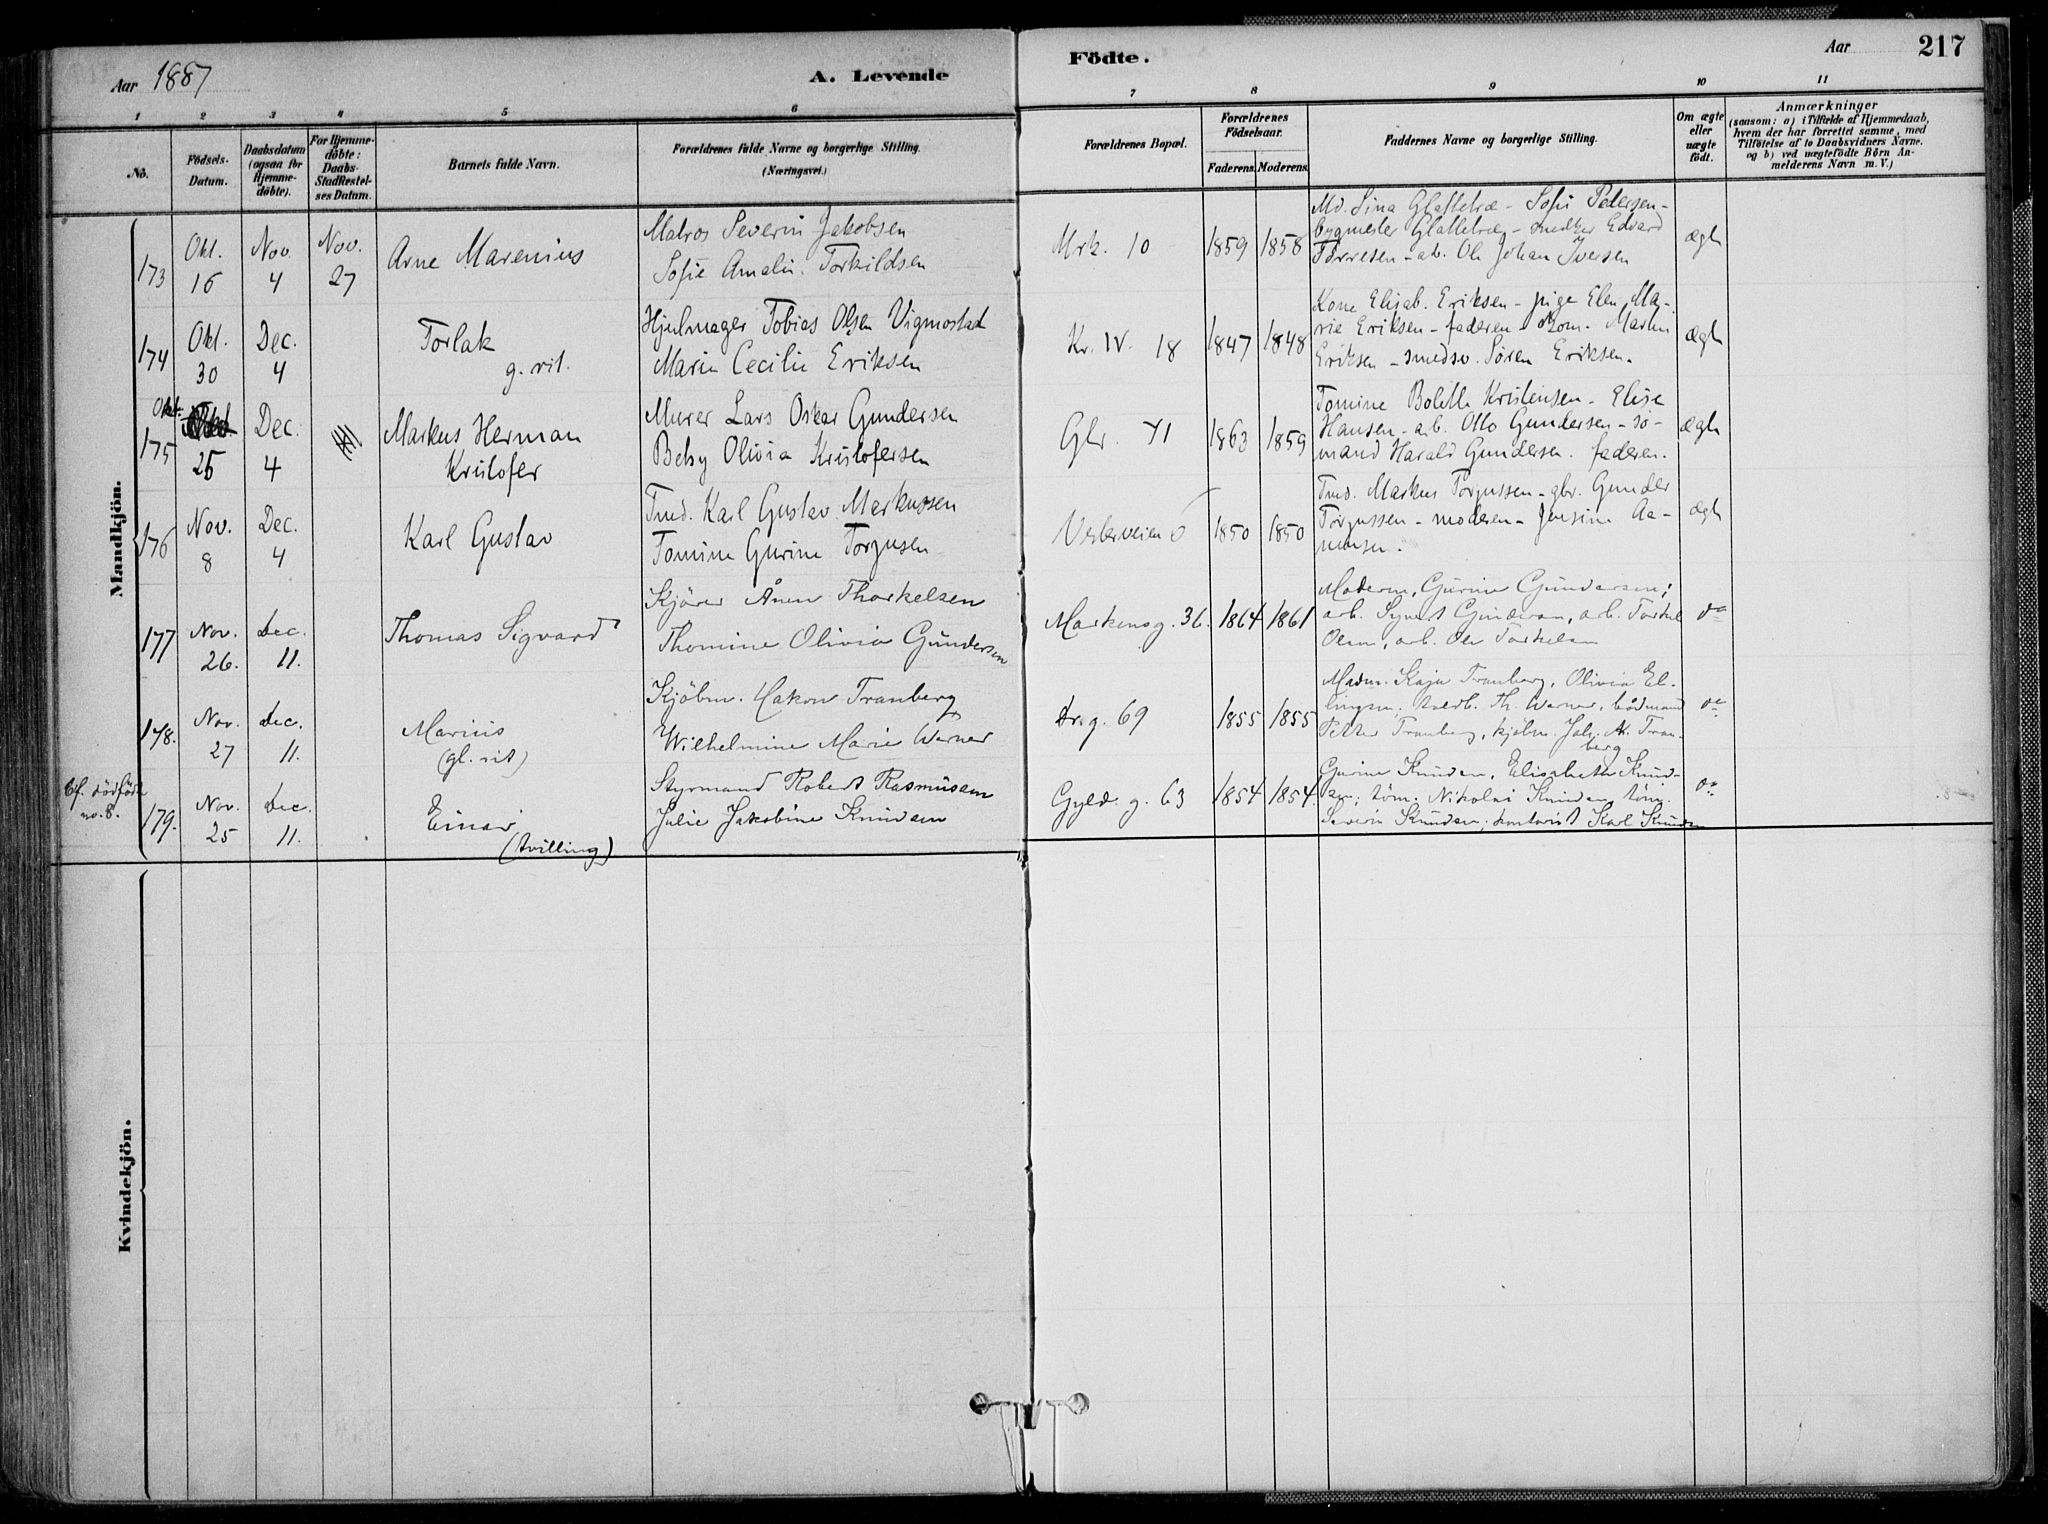 Aar 1887
A. Levende
Födte.
Aar
217
1 2 3 4 5 6 7 8 9 10 11
No.
Födsels-
Datum.
Daabsdatum
(ogsaa for
Hjemme-
döbte).
For Hjemme-
döbte:
Daabs-
Stadfæstel-
ses Datum.
Barnets fulde Navn.
Forældrenes fulde Navne og borgerlige Stilling.
(Næringsvei.)
Forældrenes Bopæl.
Forældrenes
Födselsaar.
Faderens. Moderens.
Faddernes Navne og borgerlige Stilling.
Om ægte
eller
uægte
födt.
Anmærkninger
(saasom: a) i Tilfælde af Hjemmedaab,
hvem der har forrettet samme, med
Tilföielse af to Daabsvidners Navne.
og b) ved uægtefödte Börn An-
melderens Navn m. V.)
Mandkjön.
173
Okt.
16
Nov.
4
Nov.
27
Arne Marenius
Matros Severin Jakobsen
Sofie Amalie Torkildsen
Mrk. 10
1859
1858
Md. Lina Glattetræ - Sofie Petersen -
bygmester Glattetræ - snedker Edvard
Torresen - arb. Ole Johan Iversen
ægte
174
Okt.
30
Dec.
4
Torlak
g. rit.
Hjulmager Tobias Olsen Vigmostad
Marie Cecilie Eriksen
Kr. IV. 18
1847
1848
Kone Elisab. Eriksen - pige Elen Ma-
rie Eriksen - faderen - skom. Martin
Eriksen - smedsv. Sören Eriksen.
ægte
175
Okt.
25
Dec.
4
Markus Herman
Kristofer
Murer Lars Oskar Gundersen
Betsy Olivia Kristofersen
Glv. 41
1863
1859
Tomine Bolette Kristensen - Elise
Hansen - arb. Otto Gundersen - sö-
mand Harald Gundersen. faderen.
ægte
176
Nov.
8
Dec.
4
Karl Gustav
Tmd. Karl Gustav Markussen
Tomine Gurine Torjusen
Vesterveien 6
1850
1850
Tmd. Markus Torjussen - gbr. Gunder
Torjussen - moderen - Jensine Aa-
nensen.
ægte
177
Nov.
26.
Dec.
11.
Thomas Sigvard
Kjörer Ånen Thorkelsen
Thomine Olivia Gundersen
Markensg. 36.
1864
1861
Moderen, Gurine Gundersen;
arb. Synert Gundersen, arb. Torkel
Olsen, arb. Ole Torkelsen
do
178.
Nov.
27
Dec.
11.
Marius
(gl. rit)
Kjöbm. Hakon Tranberg
Wilhelmine Marie Werner
Dr. g. 69
1855
1855
Madm. Kaja Tranberg, Olivia El-
lingsen, Th. Werner,
Petter Tranberg, kjöbm. Joh. M. Tran-
berg
do
Cf. dödfödte
no. 8.
179.
Nov.
25
Dec.
11.
Einar
(tvilling)
Styrmand Robert Rasmussen
Julie Jakobine Knudsen
Gyld. g. 63
1854
1854.
Gurine Knudsen, Elisabeth Knud-
sen; töm. Nikolai Knudsen, töm.
Severin Knudsen, kontorist Karl Knudsen
do
Kvindekjön.